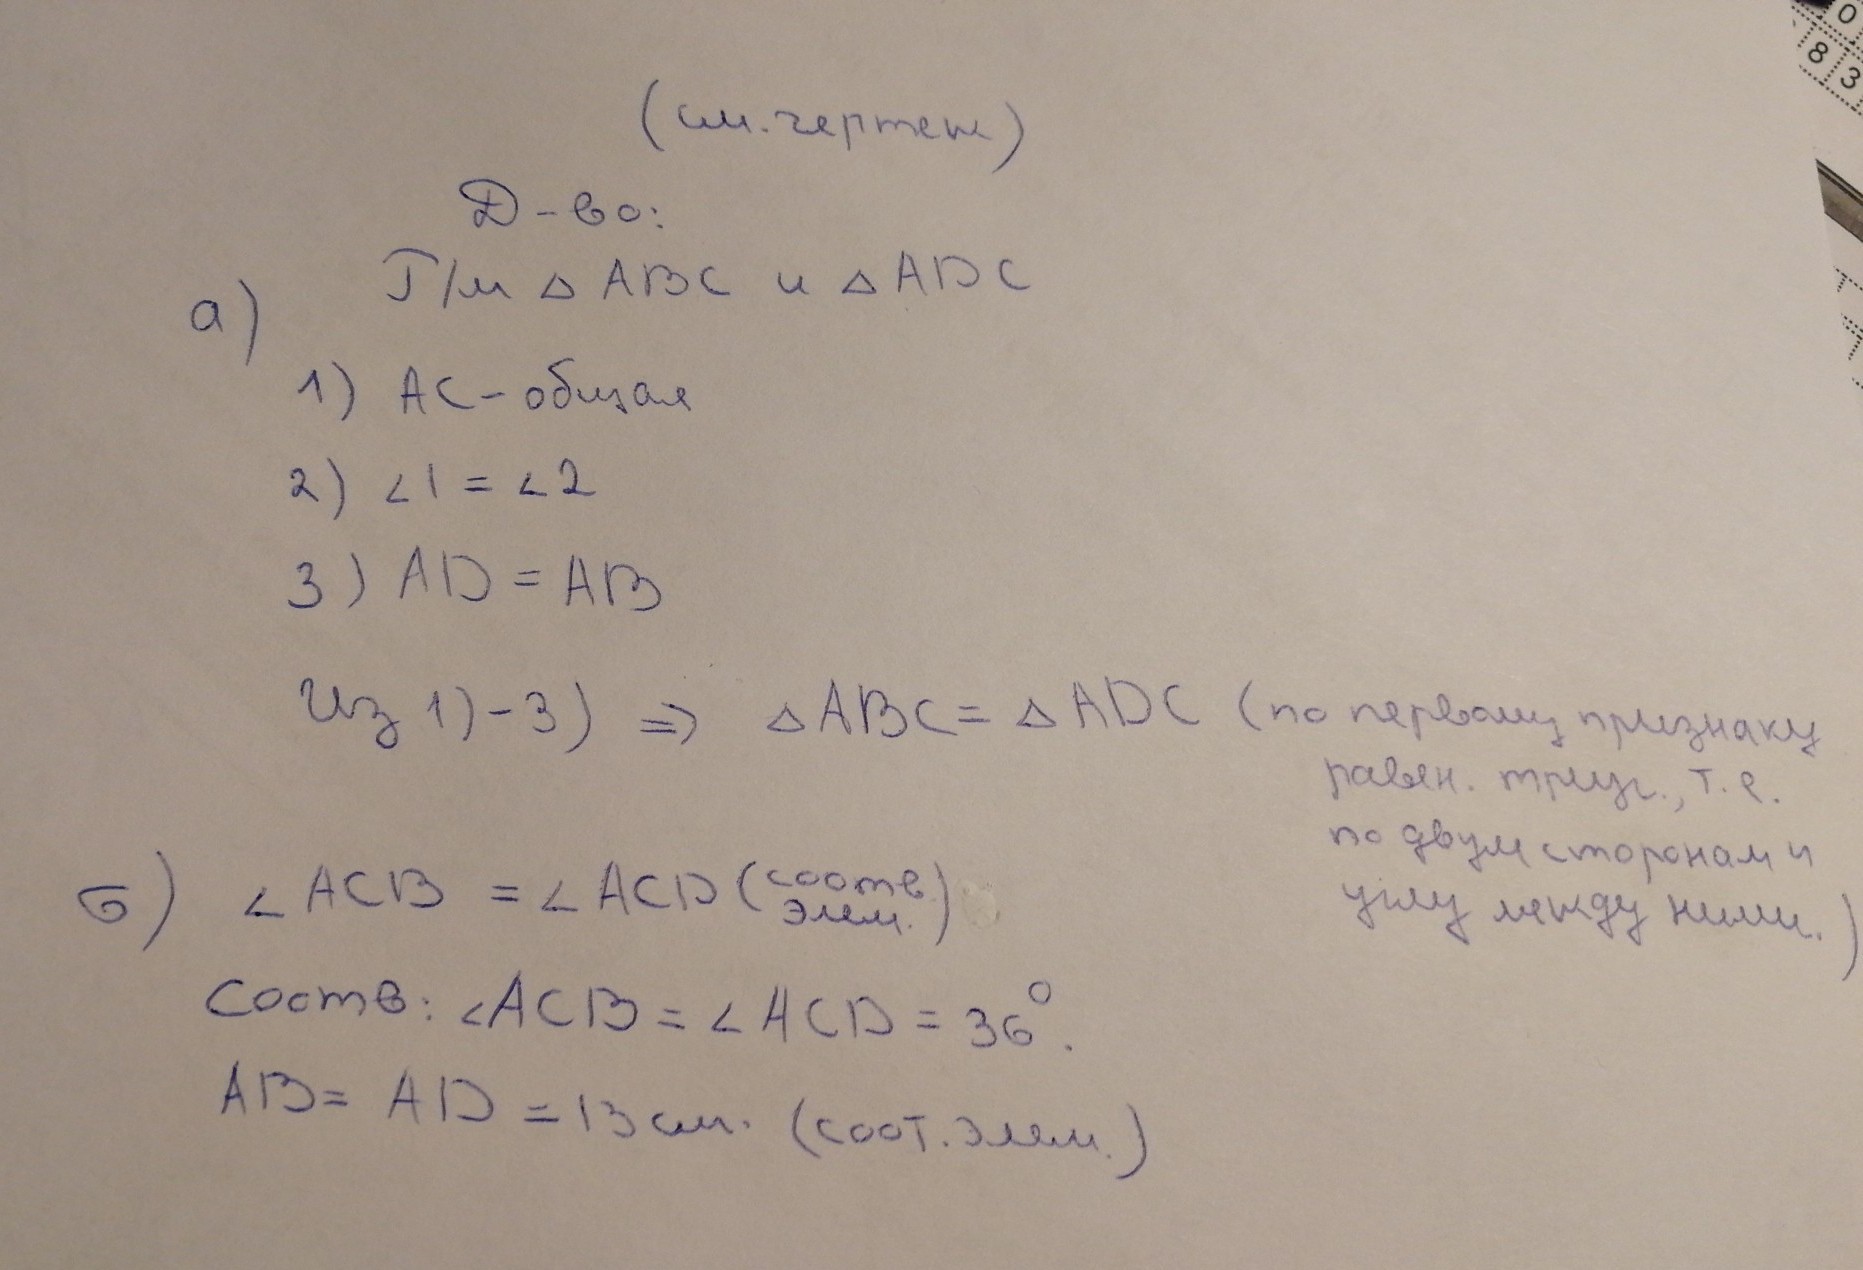 0
8 3
(см. чертеж)
Д-во:
а) Р/м △ ABC и △ ADC
1) AC - общая
2) ∠1 = ∠2
3) AD = AB
Из 1) - 3) ⇒ △ABC = △ADC (по первому признаку
равен. треуг., т.е.
по двум сторонам и
углу между ними.)
б) ∠ACB = ∠ACD (соотв
элем.)
Соотв: ∠ACB = ∠ACD = 36°.
AB = AD = 13 см. (соот. элем.)